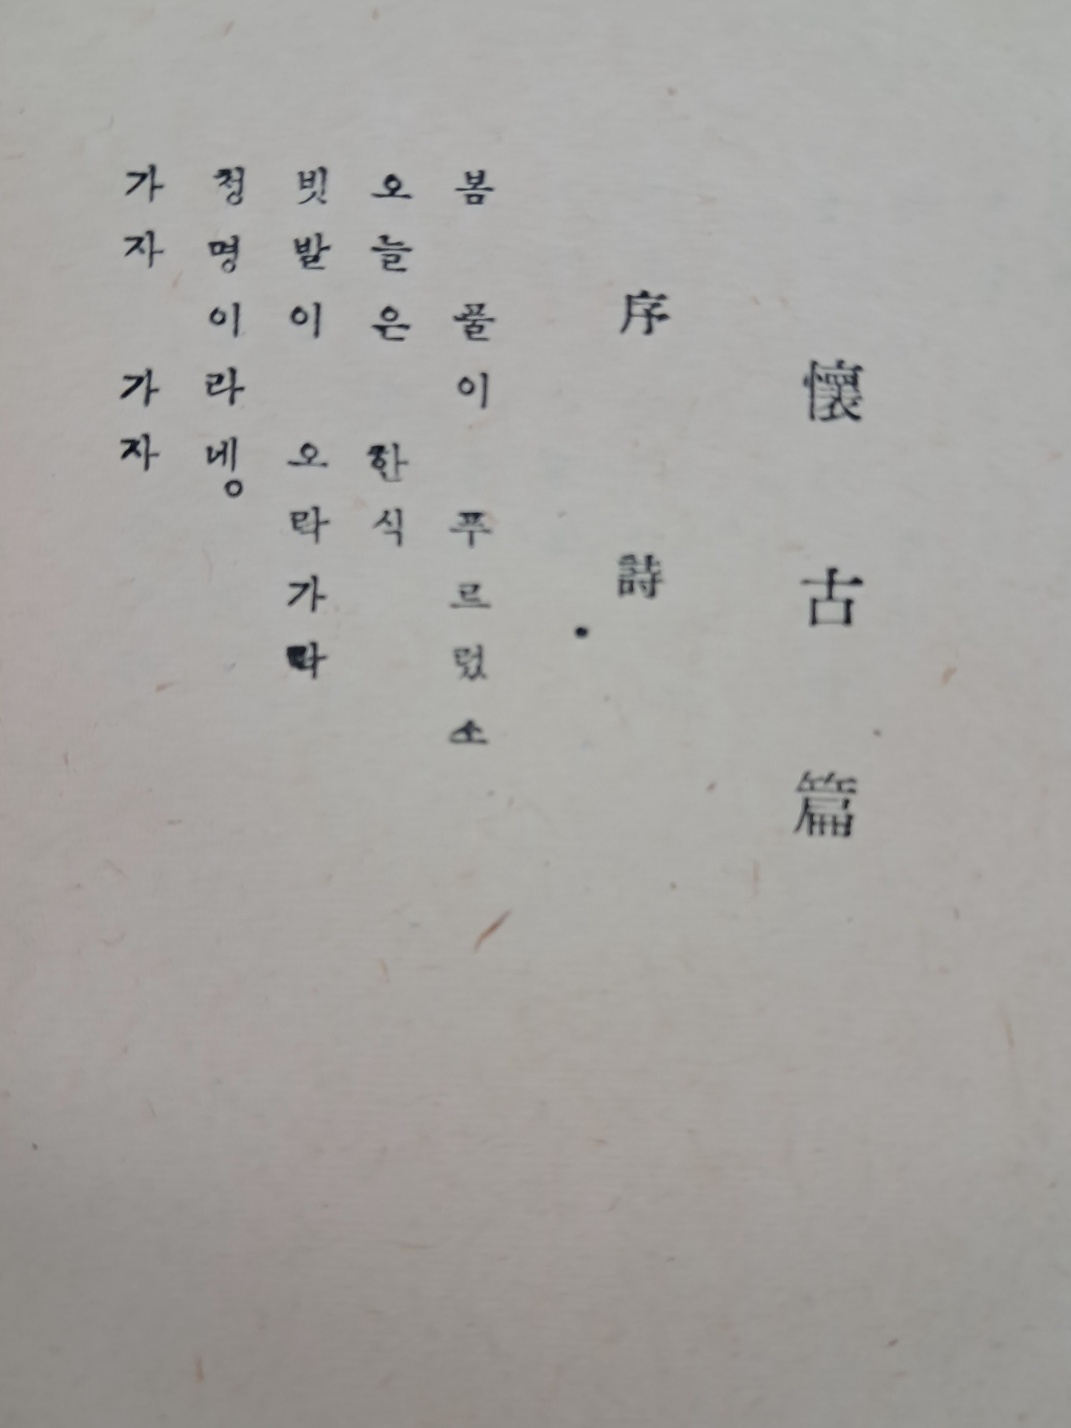 懷古篇
序詩
봄 풀이 푸르렀소
오늘은 한식
빗발이 오라가락
청명이라넹
가자 가자